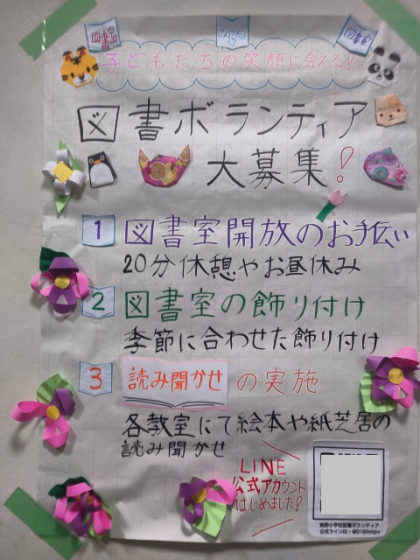 図書室
子どもたちの笑顔に会える!
図書ボランティア
大募集!
1 図書室開放のお手伝い
20分休憩やお昼休み
2 図書室の飾り付け
季節に合わせた飾り付け
3 読み聞かせの実施
各教室にて絵本や紙芝居の
読み聞かせ
LINE
公式アカウント
はじめました!